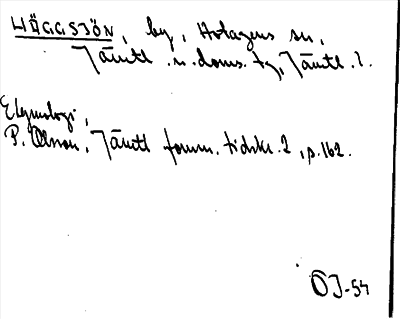 HÄGGSJÖN, by, Hotagens sn,
Jämtl. n. doms. tg, Jämtl. l.
Etymologi,
P. Olsson, Jämtl fornm. tidskr. 2, p. 162.
ÖJ-54